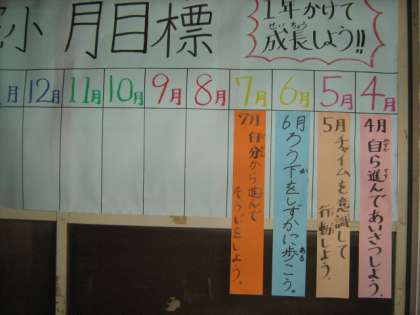 小 月目標
1年かけて
成長しよう!!
せいちょう
4月
5月
6月
7月
8月
9月
10月
11月
12月
月
4月 自ら進んであいさつしよう。
5月 チャイムを意識して
行動しよう。
6月 ろう下をしずかに歩こう。
7月 自分から進んで
そうじをしよう。